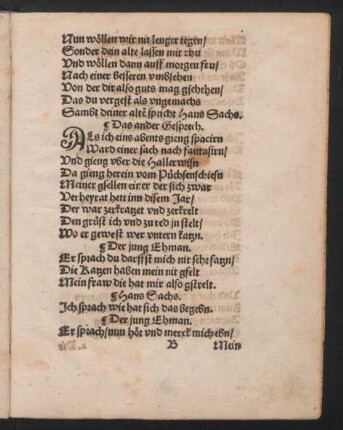 Nun wöllen wir nit lenger tegen/
Sonder dein alte lassen mit rhu
Vnd wöllen dann auff morgen fru/
Nach einer besseren vmbsehen
Von der dir also guts mag gschehen/
Das du vergest als vngemachs
Sambt deiner altē spricht Hans Sachs.
¶ Das ander Gesprech.
Als ich eins abents gieng spacirn
Ward einer sach nach fantasirn/
Vnd gieng vber die Hallerwisn
Da gieng herein vom Püchsenschiesn
Meiner gsellen einer der sich zwar
Verheyrat hett inn disem Jar/
Der war zerkratzet vnd zerkrelt
Den grüst ich vnd zu red jn stelt/
Wo er gewest wer vntern katzn.
¶ Der jung Ehman.
Er sprach du darffst mich nit sehr fatzn/
Die Katzen haben mein nit gfelt
Mein fraw die hat mir also gstrelt.
¶ Hans Sachs.
Ich sprach wie hat sich das begebn.
¶ Der jung Ehman.
Er sprach/nun hör vnd merck mich ebn/
B Mein